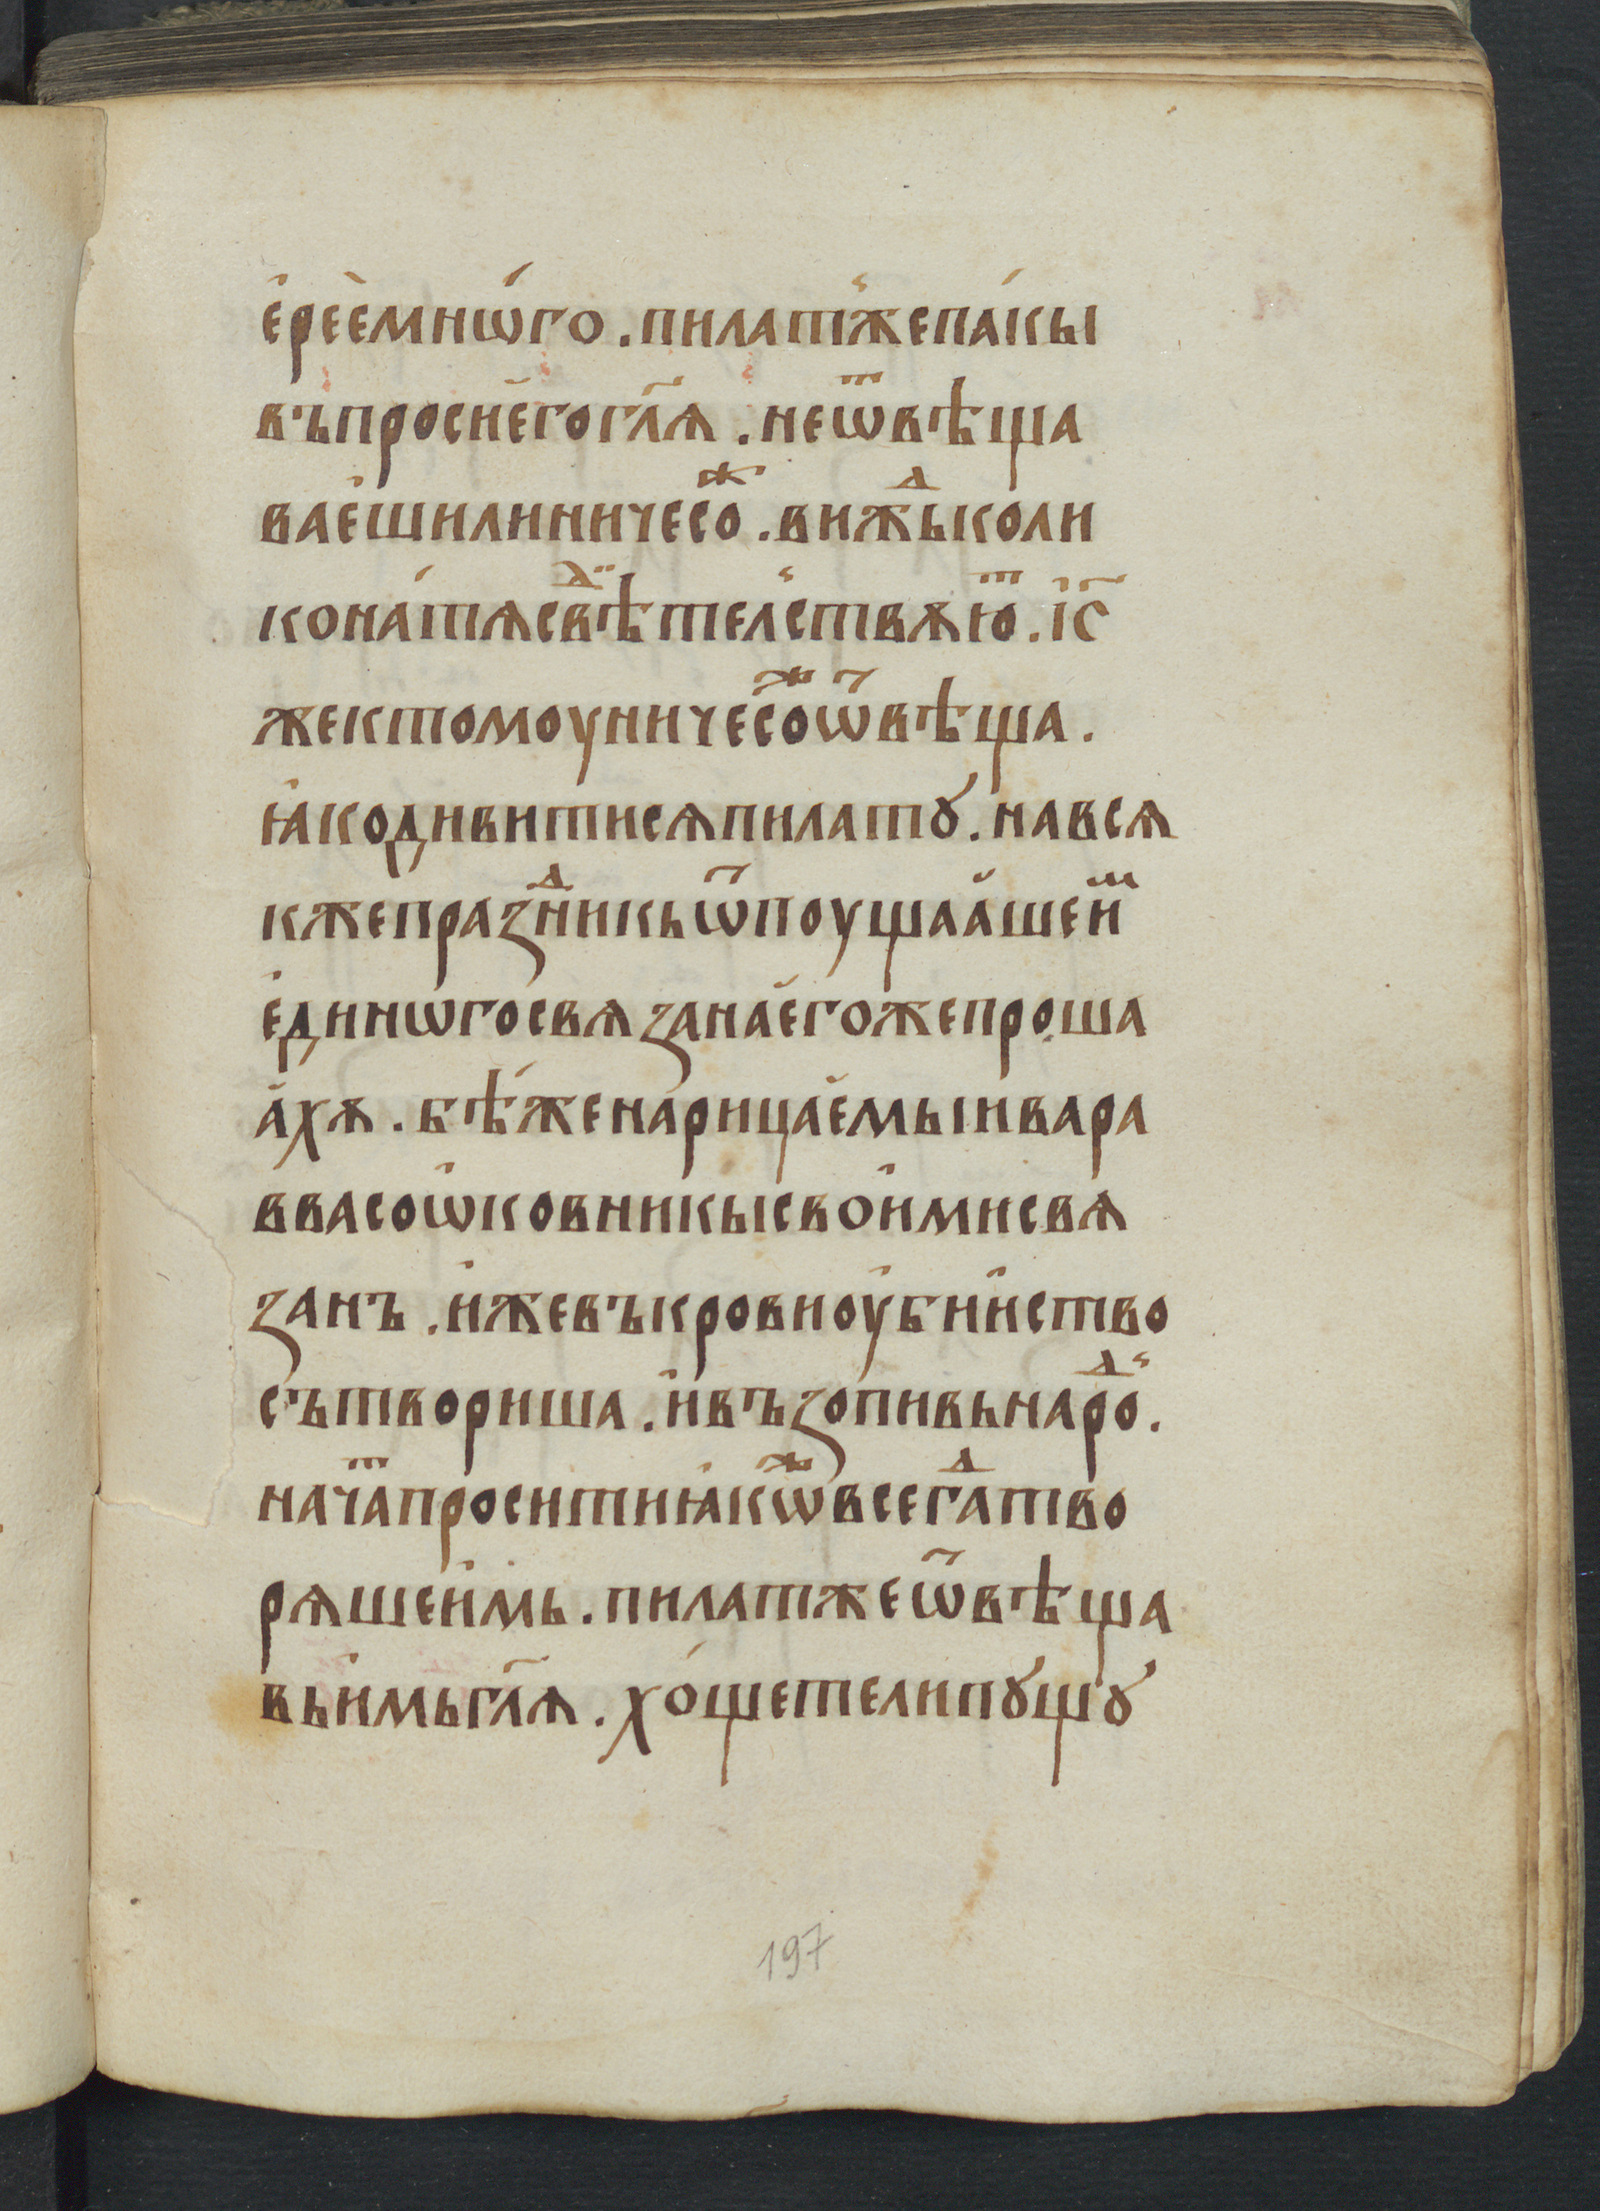 ерееⷨ мнѡ́го . пилат̾жепа́кы
въпросиегогл҃ѧ . неѿвѣща
ваешилиничесоⷤ . вижⷣьколи
кона́тѧсвⷣѣтел̾ствѫюⷮ . іс҃
жектомоуничесоⷤѿвѣща .
ꙗкодивитисѧпилатꙋ . навсѧ
кжепразⷣникьѿпоущаашеиⷨ
единѡгосвѧзанаегожепроша
ахѫ . бѣ́ женарицаемыивара
ввасоѡковникысвоимисвѧ
занъ . ижевъкровиоубииство
сътвориша . ивъзопивьнароⷣ .
начаⷮпроситиꙗкѡⷤвсегⷣатво
рѧшеимь . пилатжеѿвѣща
вьимьгл҃ѧ . хо́щетелипꙋщꙋ
197